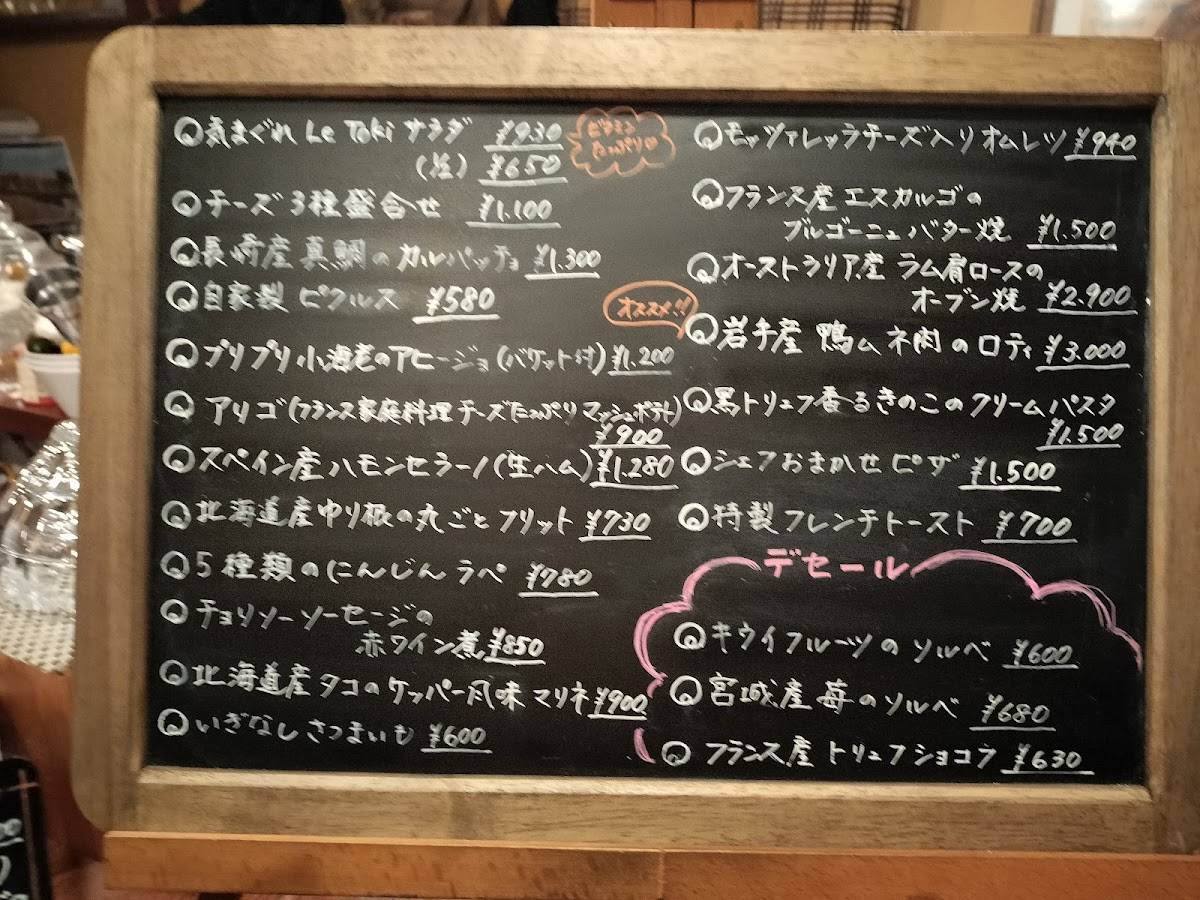 気まぐれ Le Toki サラダ ¥930
(公) ¥650
ビタミン
たっぷり♡
チーズ3種盛合せ ¥1.100
長崎産真鯛のカルパッチョ ¥1.300
自家製ピクルス ¥580
プリプリ小海老のアヒージョ(バケット付) ¥1.200
アリゴ(フランス家庭料理チーズたっぷりマッシュポテト)
¥900
スペイン産ハモンセラーノ(生ハム) ¥1.280
北海道産ゆり根の丸ごとフリット ¥730
5種類のにんじんラペ ¥780
チョリソーソーセージの
赤ワイン煮 ¥850
北海道産タコのケッパー風味マリネ ¥900
いぎなしさつまいも ¥600
モッツァレッラチーズ入りオムレツ ¥940
フランス産エスカルゴの
ブルゴーニュバター焼 ¥1.500
オーストラリア産ラム肩ロースの
オーブン焼 ¥2.900
オススメ!!
岩手産鴨ムネ肉のロティ ¥3.000
黒トリュフ香るきのこのクリームパスタ
¥1.500
シェフおまかせピザ ¥1.500
特製フレンチトースト ¥700
デセール
キウイフルーツのソルベ ¥600
宮城産苺のソルベ ¥680
フランス産トリュフショコラ ¥630